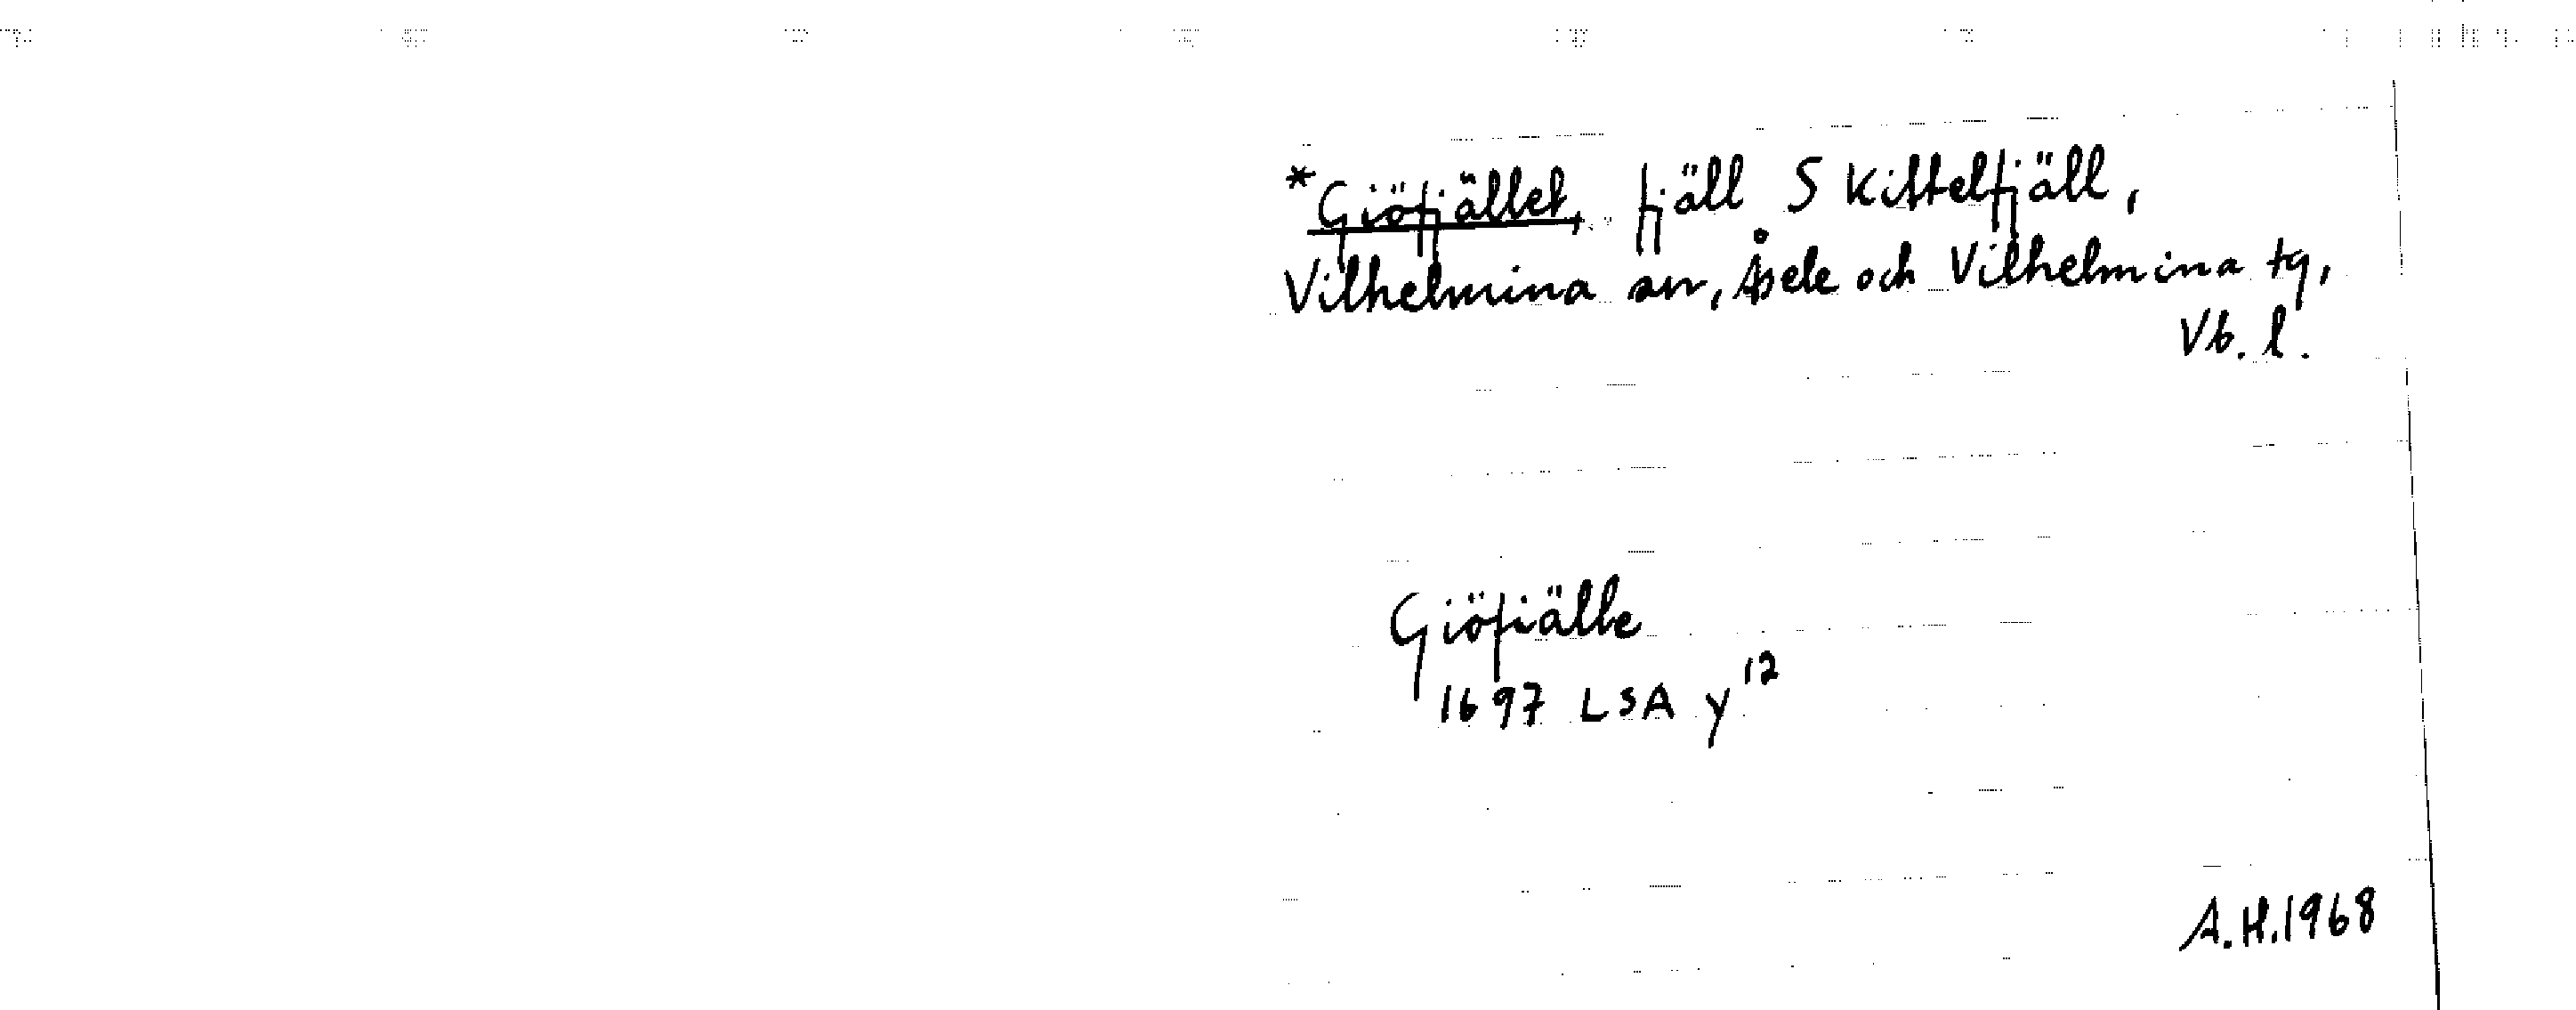 *Giöfjället, fjäll S Kittelfjäll,
Vilhelmina sn, Åsele och Vilhelmina tg,
Vb. l.
Giöfiälle
1697 LSA y¹²
A.H.1968